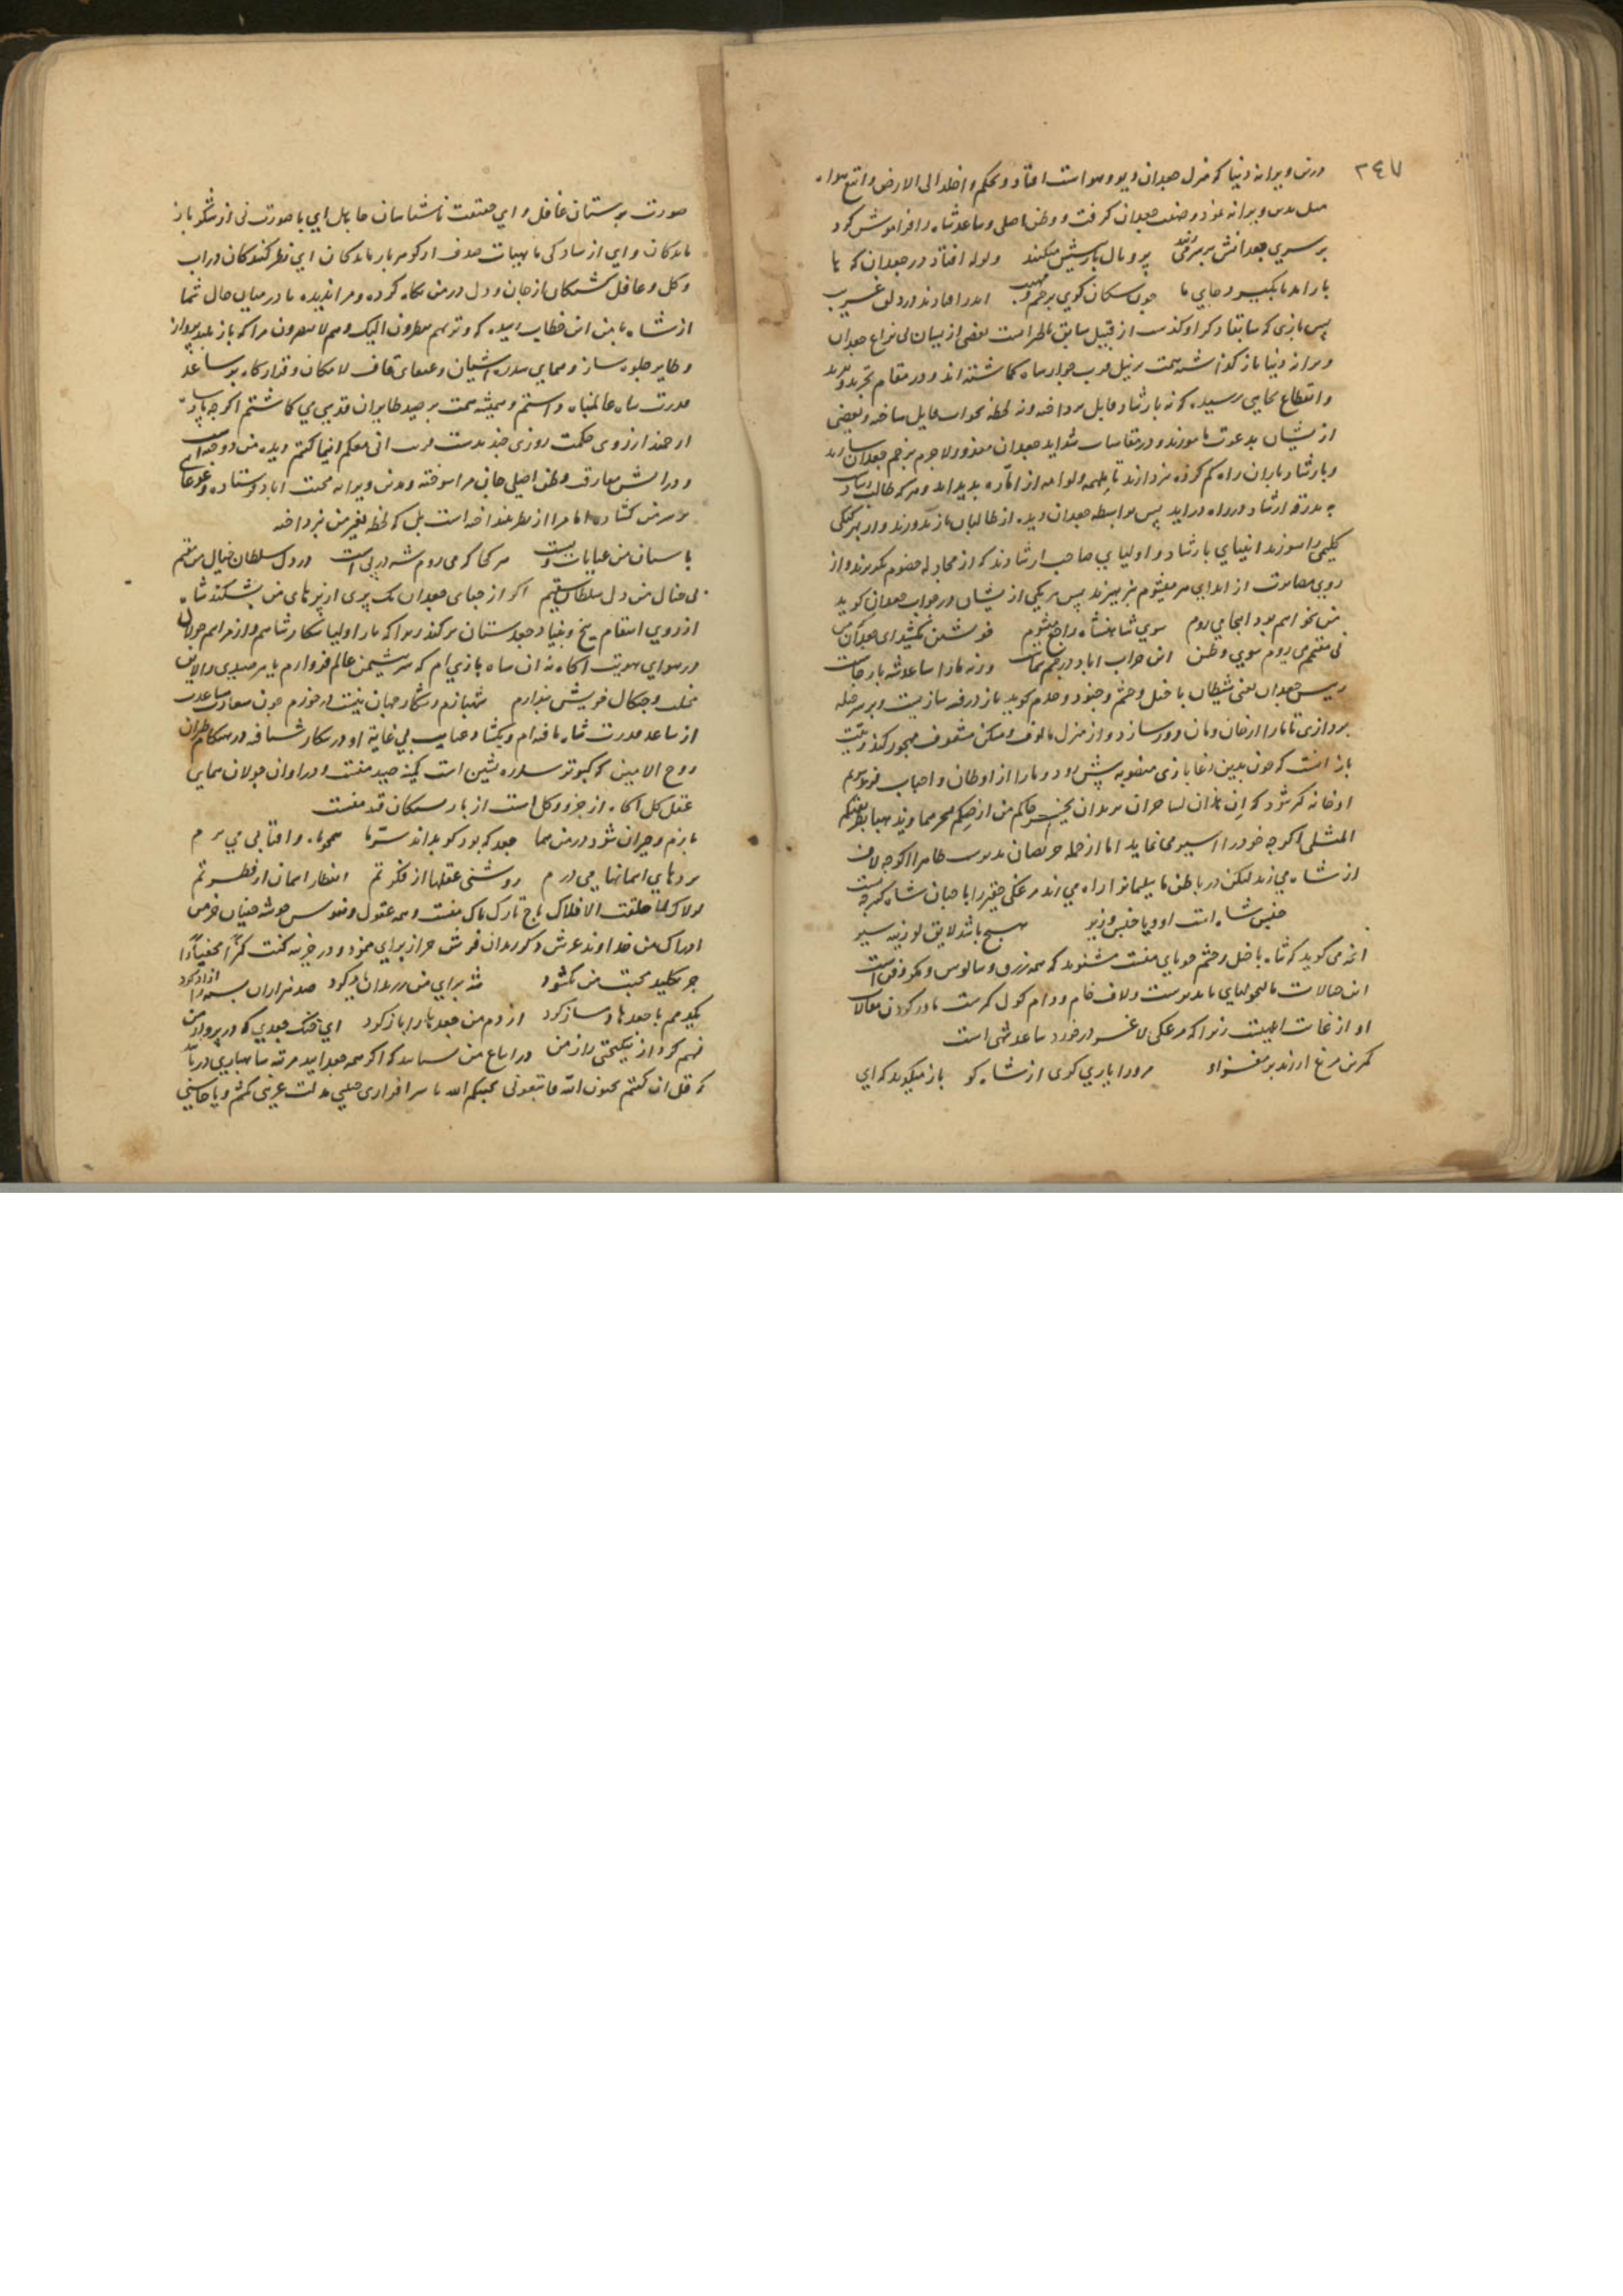 ٢٤٧
درین ویرانه دنیا که منزل جعدان دیو و هواست افتاد و بحکم و اخلد الی الارض و اتبع هواه
میل بدین ویرانه نمود و صفت جعدان گرفت و وطن اصلی و ساعد شاه را فراموش کرد
بر سری جعدانش بر سر می زنند پر و بال نازنینش میکنند ولوله افتاد در جعدان که ها
باز امد تا بگیرد جای ما چون سکان کوی پر خشم و مهیب اندر افتادند در دلق غریب
پس بازی که سابقا ذکر او گذشت از قبیل سابق بعضی از بیان نزاع جعدان
ویرانه دنیا باز گذاشته همت بر نیل قرب جوار شاه گماشته اند و در مقام تجرید و تفرید
و انقطاع بجایی رسیده که نه بارشاد قابل پرداخته و نه لحظه بجواب مایل ساخته و بعضی
ازیشان بدعوت مامورند و در مقاسات شداید جعدان معذور لاجرم بزخم جعدان
و بارشاد یاران راه گم کرده پردازند تا ملهمه و لوامه از اماره پدید اید و هر که طالب
بدرقه ارشاد در راه دراید پس بواسطه جعدان دیده از طالبان باز ندوزند و از بهر کیکی
گلیمی را نسوزند انبیای بارشاد و اولیای صاحب ارشادند که از مجادله خصوم نگریزند و از
روی از ابدای هر میشوم نپرهیزند پس هر یکی ازیشان در جواب جعدان گوید
من نخواهم بود اینجا می روم سوی شاهنشاه راجع میشوم خویشتن مکشید ای جعدان من
نی مقیمم می روم سوی وطن این خراب اباد در چشم شماست ورنه ما را ساعد شه باز جاست
رییس جعدان یعنی شیطان با خیل و حشم و جنود و خدم گوید باز در فن سازیست و بر سر حیله
پردازی تا ما را از خان و مان دور سازد و از منزل مالوف و مسکن مشغوف مهجور کند
باز انست که چون بدین دغا بازی منصوبه پیش رود و ما را از اوطان و احباب
او خانه گیر شود که ان هذان لساحران یریدان یخرجاکم من ارضکم بسحرهما و یذهبا بطریقتکم
المثلی اگر چه خود را اسیر می نماید اما از جمله حریصان بدترست ظاهرا اگر چه لاف
از شاه می زند لیکن در باطن ما سلیمانرا از راه می زند مرغکی حقیر را با جان شاه
جنس شاه است او و یا جنس وزیر هیچ باشد لایق لوزینه سیر
انچه می گوید که شاه با خیل و حشم جویای منست مشنوید که همه زرق و سالوس و مکر و فن است
این خیالات مالیخولیای نادرست و لاف خام و دام گول گیرست باور کردن مقالات
او از غایت ابلهیست زیرا که مرغکی لاغر در خورد ساعد شهی است
کمترین مرغ ار زند بر مغز او مرورا یاری گری از شاه کو باز میگوید که ای
صورت پرستان غافل و ای حقیقت ناشناسان جاهل ای با صورت نی از شکر باز
ماندگان و ای از سادگی با هیات صدف از گوهر باز ماندگان ای نظر کنندگان در اب
و گل و غافل گشتگان از جان و دل در من نگاه کرده و مرا ندیده ما در میان حال شما
از شاه با من این خطاب رسیده که و تریهم ینظرون الیک و هم لا یبصرون مرا که باز بلند پرواز
و طایر جلوه ساز و همای سدره اشیان و عنقای قاف لامکان و قرارگاه بر ساعد
قدرت شاه عالمپناه داشتم و همیشه همت بر صید طایران قدسی می گماشتم اگر چه
از روی حکمت روزی چند بدست انی معکم اینما کنتم دیده من دوخته
و در اتش مفارقت وطن اصلی جان مرا سوخته و بدین ویرانه محنت اباد فرستاده
بر سر من گشاده اما مرا از نظر نینداخته است بل که لحظه بغیر من نپرداخته
پاسبان من عنایات ویست هر کجا که می روم شه در پی است در دل سلطان خیال من مقیم
بی خیال من دل سلطان سقیم اگر از جفای جعدان یک پری از پرهای من بشکند شاه
از روی انتقام بیخ و بنیاد جعدستان بر کند زیرا که باز اولیا شکار شاهم و از مراسم جولان
در هوای هویت اگاه نه ان سیاه بازی ام که سر نشیمن عالم فرو ارم یا بهر صیدی والایی
مخلب و چنگال خویش بیازارم شهبازم و شکار جهان نیست در خورم چون سعادت مساعدت
از ساعد قدرت شاه یافته ام و بگشاد عنایت بی غایت او در شکار شتافته در هنگام طیران
روح الامین که کبوتر سدره نشین است کمینه صید منست و در اوان جولان همای
عقل کل اگاه از جزو و کل است از بار سگان قید منست
بازم و حیران شود در من هما جعد که بود کو بداند سر ما همچو ماه و افتابی می پرم
پردهای اسمانها می درم روشنی عقلها از فکرتم انفطار اسمان از فطرتم
لولاک لما خلقت الافلاک تاج تارک پاک منست و همه عقول و نفوس خوشه چینان خرمن
ادراک من خداوند عرش ذکر رندان فرش جز از برای من نمود و در خزینه کنت کنزا مخفیا را
جز بکلید محبت من نگشود شه برای من ز زندان یاد کرد صد هزاران بسته را ازاد کرد
یکدمم با جعدها دمساز کرد از دم من جعدها را باز کرد ای خنک جعدی که در پرواز من
فهم کرد از نیکبختی راز من در اتباع من شتابید که اگر همه جعدید مرتبه شاهبازی دریابید
که قل ان کنتم تحبون الله فاتبعونی یحببکم الله با سرافرازی حبیبی مذلت غریبی نکشم و با چاشنی